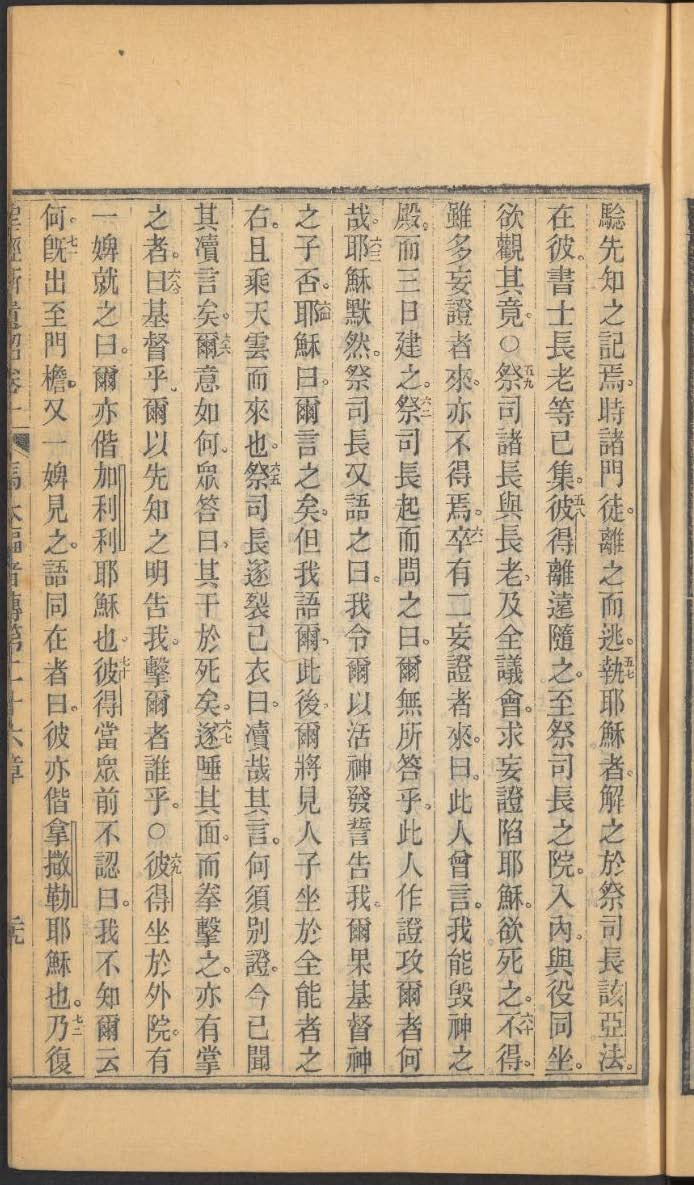 騐先知之記焉。時諸門徒。離之而逃。五七執耶穌者。解之於祭司長該亞法。
在彼。書士長老等已集。五八彼得離遠隨之。至祭司長之院。入內。與役同坐。
欲觀其竟。○五九祭司諸長與長老、及全議會。求妄證陷耶穌。欲死之。六十不得。
雖多妄證者來。亦不得焉。六一卒有二妄證者來。曰。此人曾言。我能毀神之
殿。而三日建之。六二祭司長起而問之曰。爾無所答乎。此人作證攻爾者何
哉。六三耶穌默然。祭司長又語之曰。我令爾以活神發誓告我。爾果基督神
之子否。六四耶穌曰。爾言之矣。但我語爾、此後、爾將見人子坐於全能者之
右。且乘天雲而來也。六五祭司長遂裂己衣曰。瀆哉其言。何須別證。今已聞
其瀆言矣。六六爾意如何。眾答曰。其干於死矣。六七遂唾其面。而拳擊之。亦有掌
之者。六八曰。基督乎。爾以先知之明告我。擊爾者誰乎。○六九彼得坐於外院。有
一婢就之曰。爾亦偕加利利耶穌也。七十彼得當眾前不認曰。我不知爾云
何。七一旣出至門檐。又一婢見之。語同在者曰。彼亦偕拿撒勒耶穌也。七二乃復
馬太福音傳第二十六章